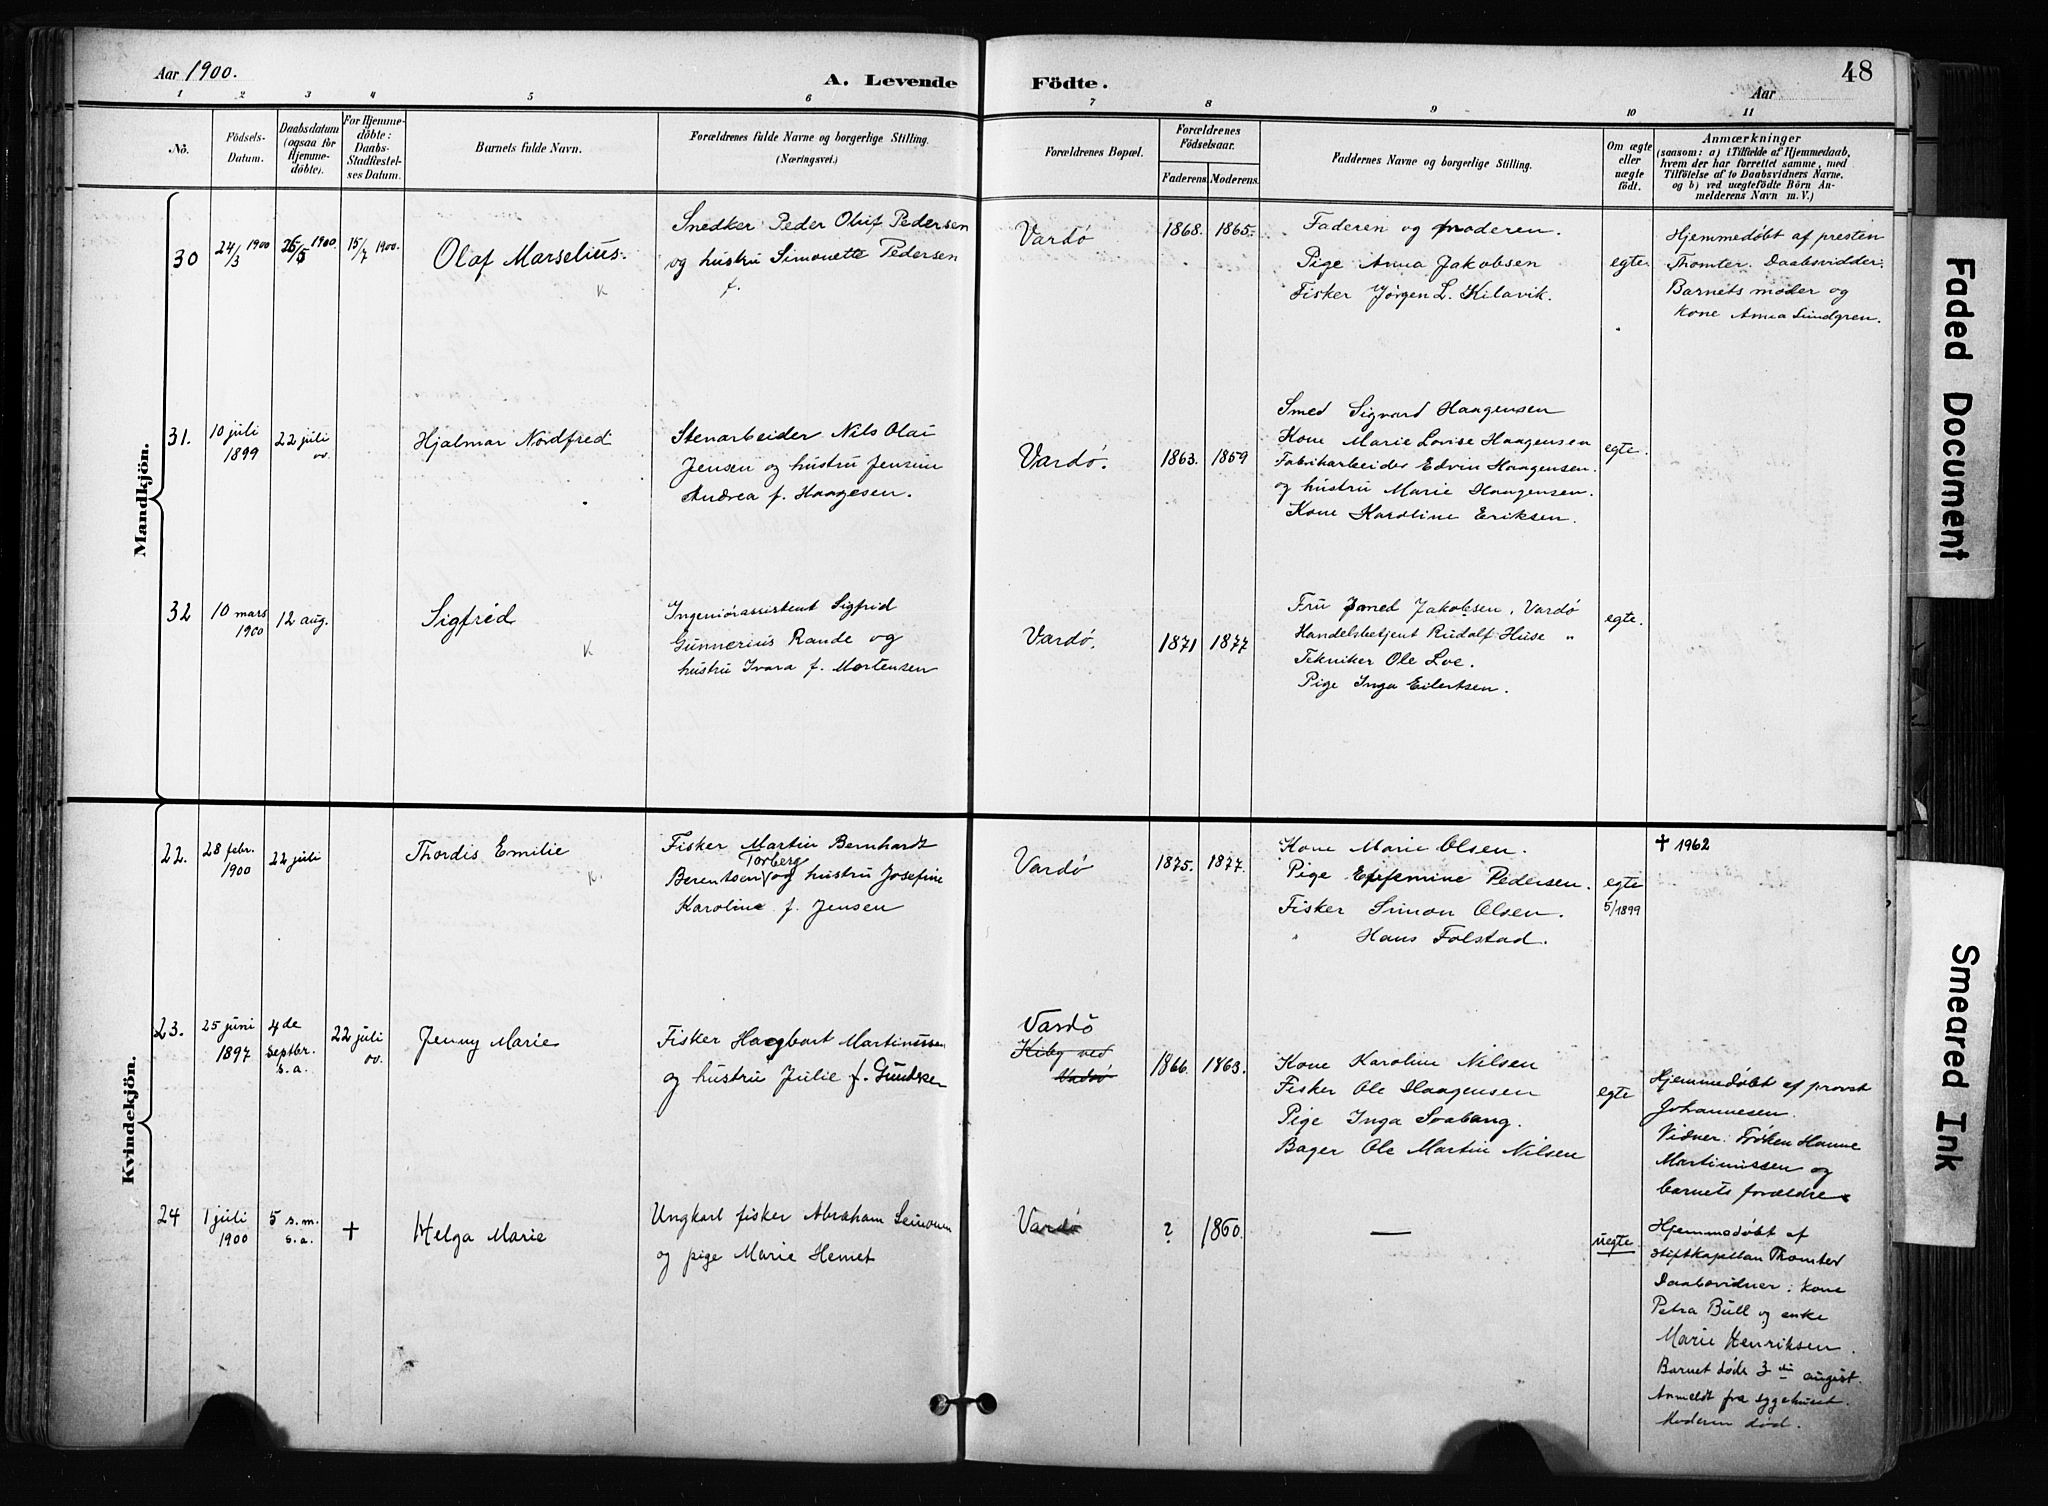 Aar 1900.
A. Levende Födte.
Aar
48
1 2 3 4 5 6 7 8 9 10 11
No.
Födsels-
Datum.
Daabsdatum
(ogsaa for
Hjemme-
döbte).
For Hjemme-
döbte:
Daabs-
Stadfæstel-
ses Datum.
Barnets fulde Navn.
Forældrenes fulde Navne og borgerlige Stilling.
(Næringsvei.)
Forældrenes Bopæl.
Forældrenes
Födselsaar.
Faderens. Moderens.
Faddernes Navne og borgerlige Stilling.
Om ægte
eller
uægte
födt.
Anmærkninger
(saasom: a) i Tilfælde af Hjemmedaab,
hvem der har forrettet samme, med
Tilföielse af to Daabsvidners Navne,
og b) ved uægtefödte Börn An-
melderens Navn m. V.)
Mandkjön.
30
24/3 1900
26/5 1900
15/7 1900.
Olaf Marselius.
K
Snedker Peder Oluf Pedersen
og hustru Simonette Pedersen
f.
Vardö
1868. 1865.
Faderen og moderen.
Pige Anna Jakobsen
Fisker Jörgen L. Kilavik.
egte.
Hjemmedöbt af presten
Thomter. Daabsvidder.
Barnets moder og
kone Anna Lundgren.
31.
10 juli
1899
22 juli
ov.
Hjalmar Nordfred
Stenarbeider Nils Olai
Jensen og hustru Jensine
Andrea f. Haagesen.
Vardö.
1863. 1859
Smed Sigvard Haagensen
Kone Marie Lovise Haagensen
Fabrikarbeider Edvin Haagensen.
og hustru Marie Haagensen.
Kone Karoline Eriksen.
egte.
32
10 mars
1900
12 aug.
Sigfred
K
Ingeniörassistent Sigfrid
Gunnerius Rande og
hustru Ivara f. Mortensen
Vardö.
1871 1877
Fru Jakobsen, Vardö
Handelsbetjent Rudolf Huse "
Tekniker Ole Loe.
Pige Inga Eilertsen.
egte.
Kvindekjön.
22.
28 febr.
1900
22 juli
Thordis Emilie
K.
Fisker Martin Bernhardt
Torberg
Berentsen og hustru Josefine
Karoline f. Jensen
Vardö
1875. 1877.
Kone Marie Olsen.
Pige Effemine Pedersen.
Fisker Simon Olsen.
" Hans Folstad.
egte
5/1899
† 1962
23.
25 juni
1897
4de
Septbr.
s.a.
22 juli
ov.
Jenny Marie
Fisker Hagbart Martinussen
og hustru Julie f. Gundersen
Vardö
Kiby ved
Vadsö
1866. 1863.
Kone Karoline Nilsen
Fisker Ole Haagensen
Pige Inga Svabang.
Bager Ole Martin Nilsen
egte
Hjemmedöbt af provst
Johannesen.
Vidner: Fröken Hanne
Martinussen og
barnets forældre
24
1 juli
1900
5 s.m.
s.a.
†
Helga Marie
Ungkarl fisker Abraham
og pige Marie Hemet
Vardö
? 1860.
—
uegte
Hjemmedöbt af
stiftskapellan Thomter
Daabsvidner: kone
Petra Bull og enke
Marie Henriksen.
Barnet döde 3die august.
Anmeldt fra sygehuset.
Moderen död.
Faded Document
Smeared Ink